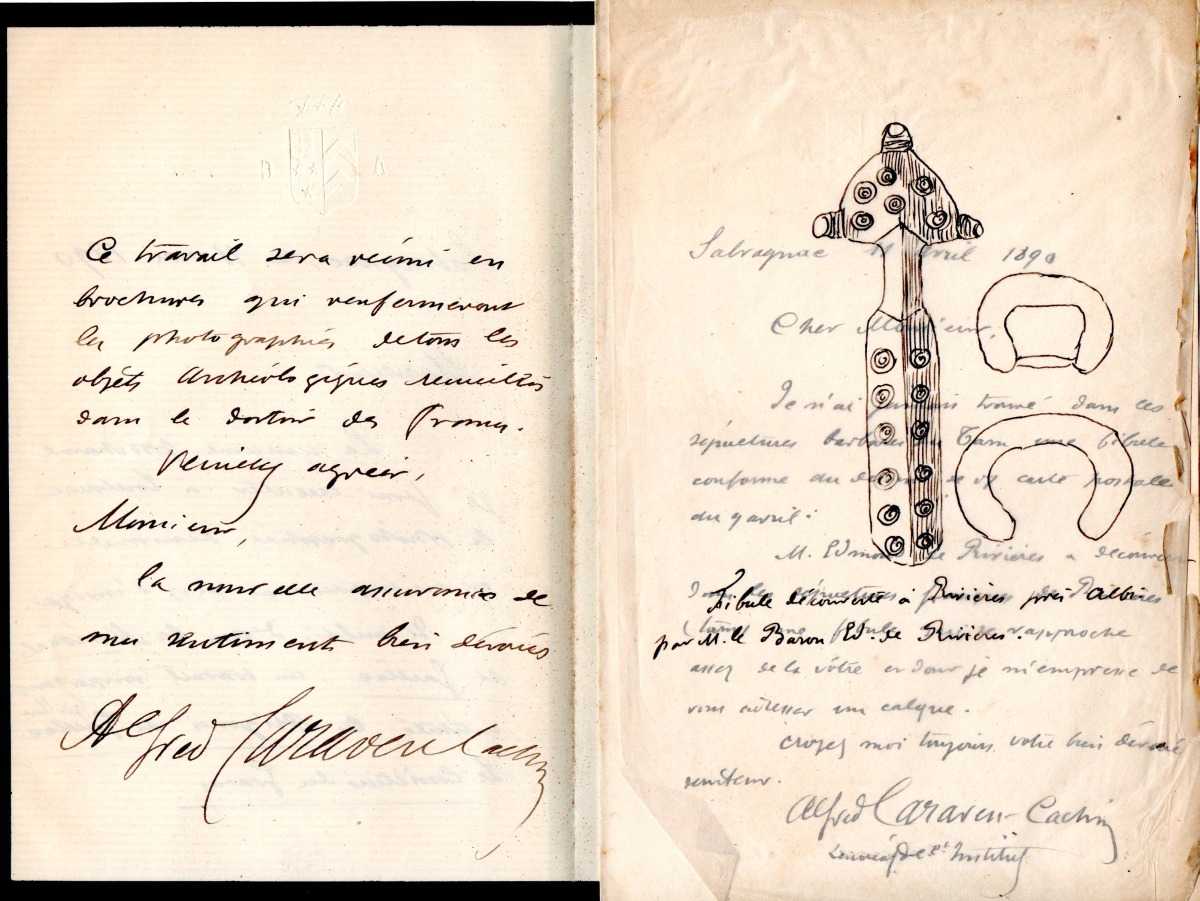 Ce travail sera réuni en
brochures qui renfermeront
les photographies de tous les
objets archéologiques recueillis
dans le dortoir des Francs.
Veuillez agréer,
Monsieur,
la nouvelle assurance de
mes sentiments bien dévoués
Alfred Caraven Cachin
Salvagnac 11 avril 1890
Cher Monsieur,
Je n'ai jamais trouvé dans les
sépultures barbares du Tarn une fibule
conforme au dessin de vs carte postale
du 9 avril.
M. Edmond de Rivières a découvert
dans les sépultures de Rivières
(Tarn) une fibule qui se rapproche
assez de la vôtre et dont je m'empresse de
vous adresser un calque.
Croyez moi toujours votre bien dévoué
serviteur.
Alfred Caraven-Cachin
Lauréat de l'Institut
Fibule découverte à Rivières près Albi
par M. le Baron Ed. de Rivières.